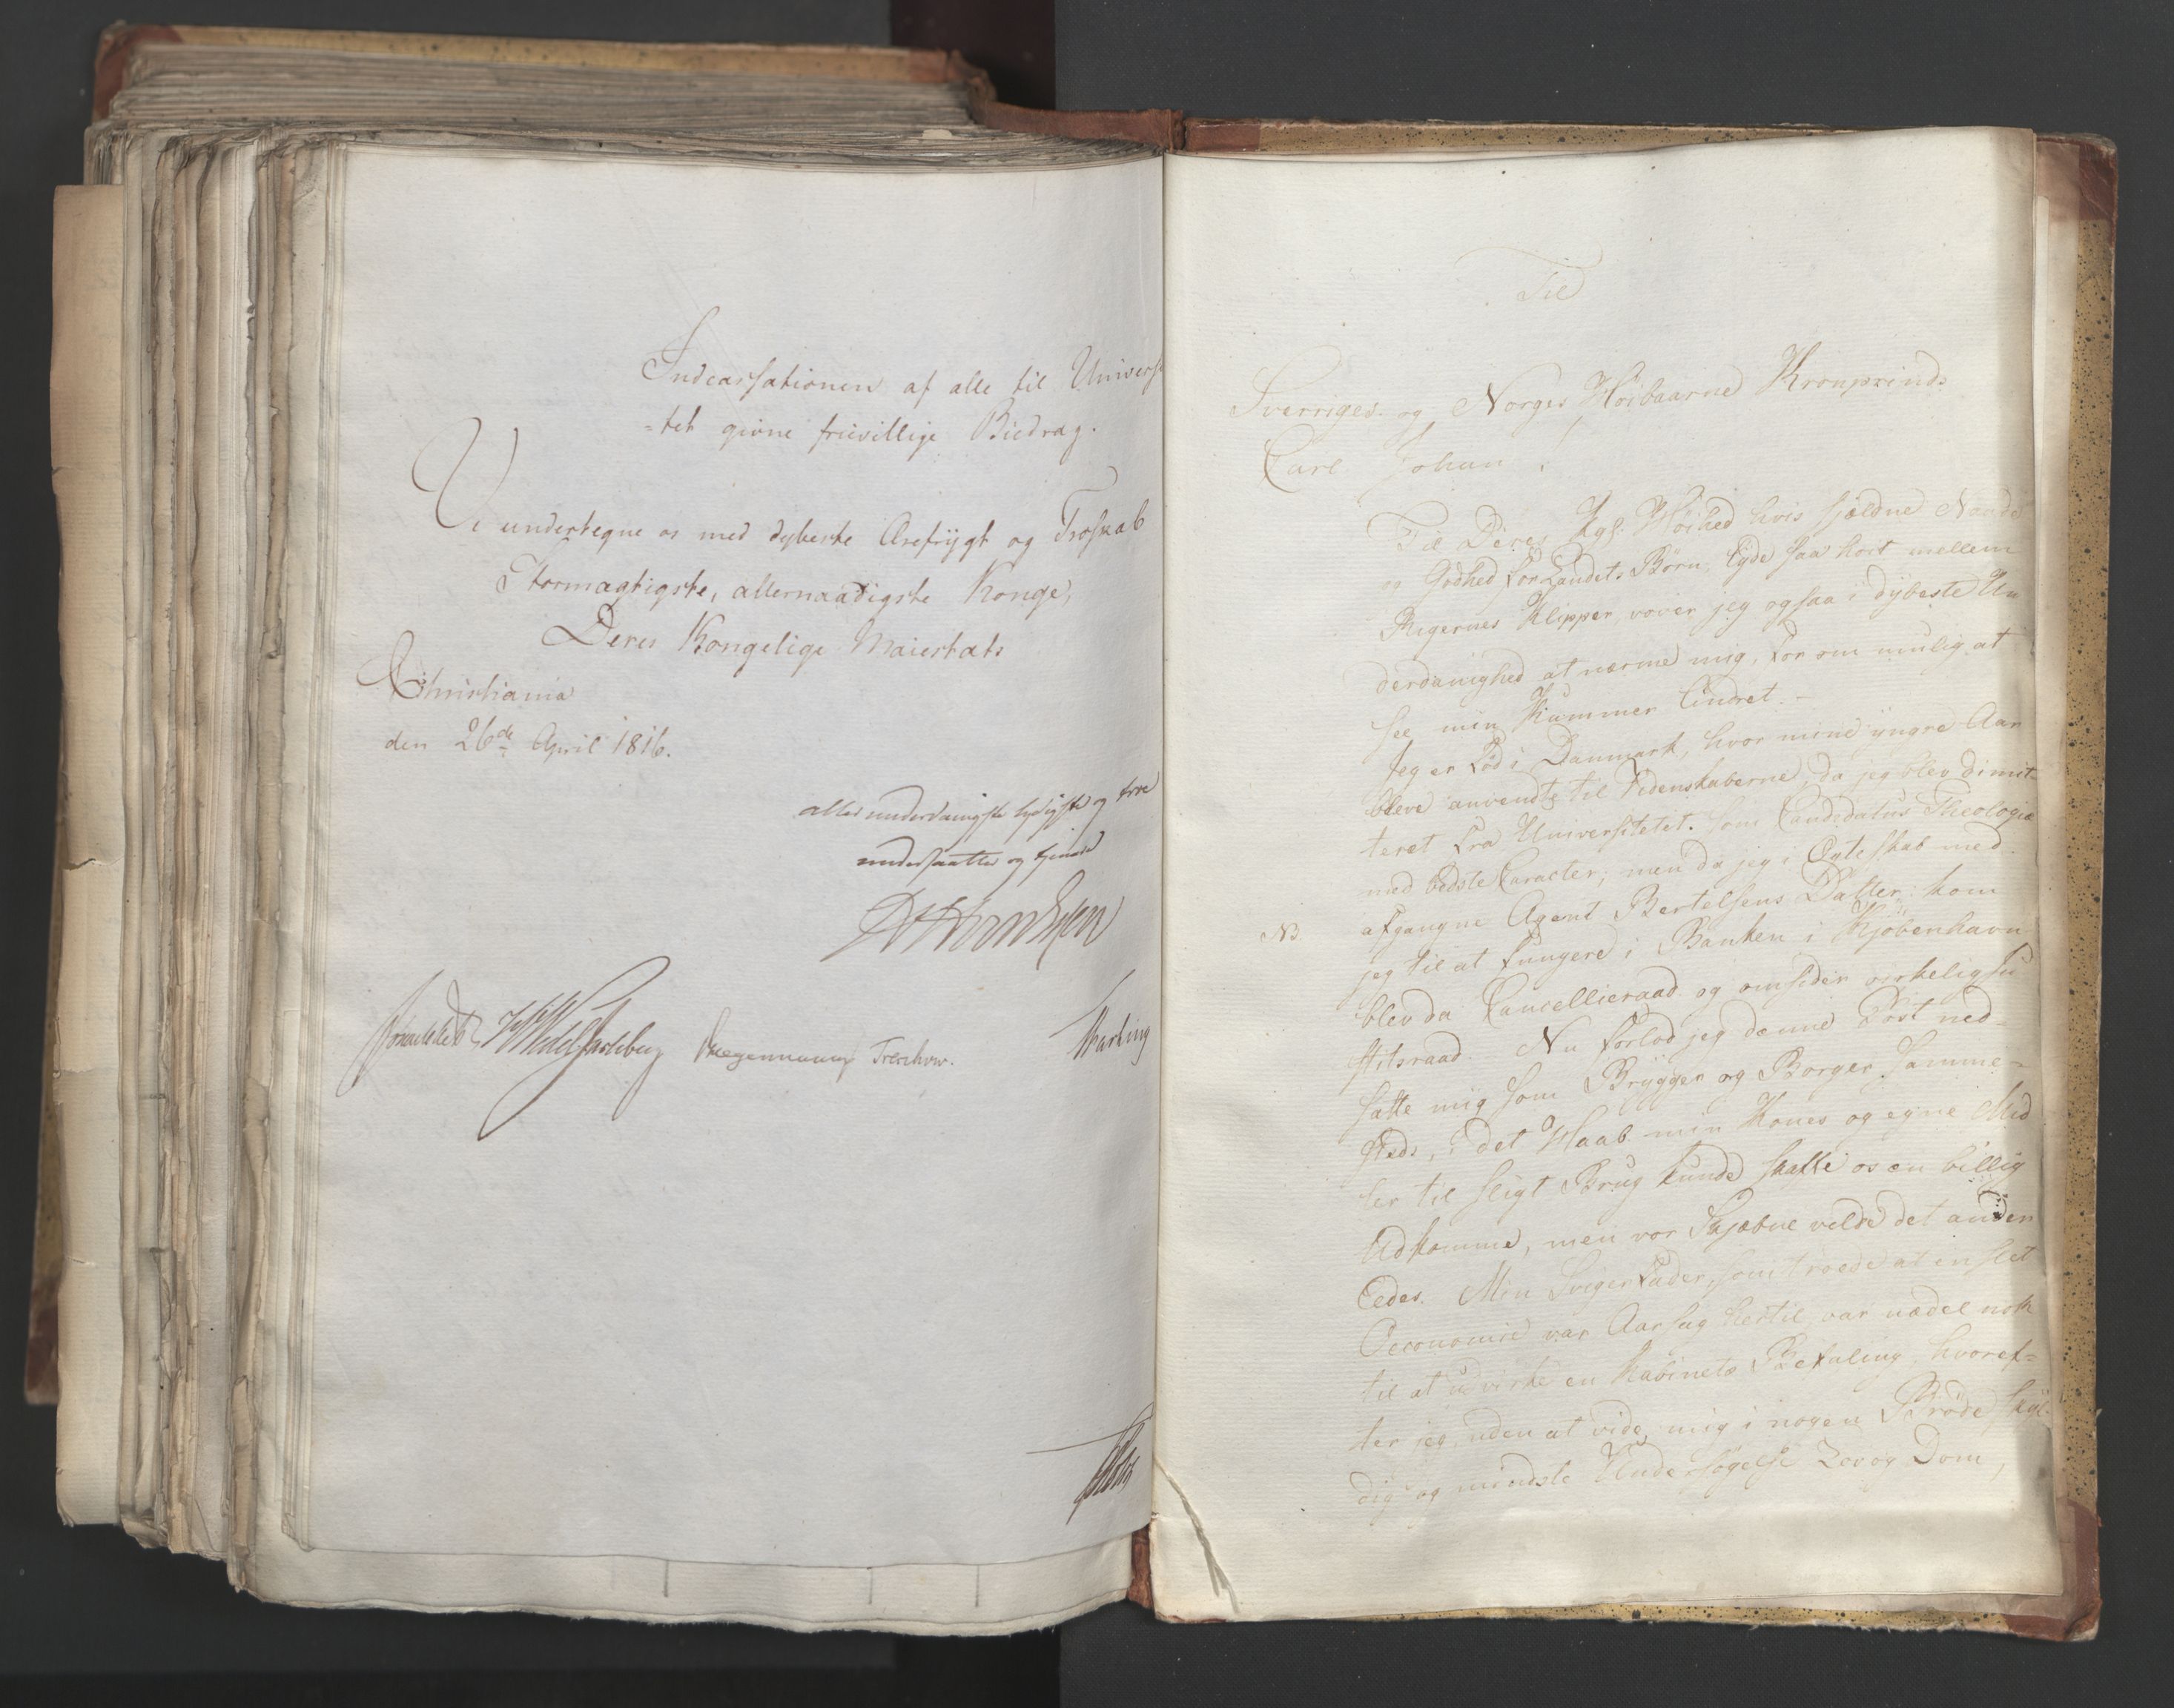 Indcassationen af alle til Universi
=tet givne friivillige Bidrag.
Vi undertegne os med dybeste Ærefrygt og Troskab
Stormægtigste, allernaadigste Konge,
Deres Kongelige Maiestæts
Christiania
den 26de April 1816.
allerunderdanigste lydigste og troe
undersaatter og tienere
Sommerhielm HWedelJarlsberg Diegenmann Treschow.
Til
Sverriges og Norges Høibaarne Kronprinds
Carl Johan!
Til Deres Kgl. Høihed hvis sjældne Naade
og Godhed for Landets Børn, lyde saa høit mellem
Rigernes Klipper, vover jeg ogsaa i dybeste Un
derdanighed at nærme mig, for om mulig at
see min Kummer lindret. –
Jeg er fød i Danmark, hvor mine yngre Aar
bleve anvendte til Videnskaberne, da jeg blev dimit-
teret fra Universitetet. som Candidatus Theologiæ
med bedste Caracter; men da jeg i Ægteskab med
NB. afgangne Agent Bertelsens Datter, kom
jeg til at fungere i Banken i Kjøbenhavn
blev da Cancellieraad og omsider virkelig Ju
stitsraad. Nu forlod jeg denne Post ned-
satte mig som Brygger og Borger samme-
steds, i det Haab min Kones og egne Mid
ler til sligt Brug kunde skaffe os en billig
Udkomme, men vor Skjæbne vilde det ander
ledes. Min Svigerfader, som troede at en slet
Oeconomie var Aarsag hertil, var uædel nok
til at udvirke en Kabinets Befaling, hvoref=
ter jeg, uden at vide mig i nogen Brøde skyl-
dig og mindste Undersøgelse Lov og Dom,